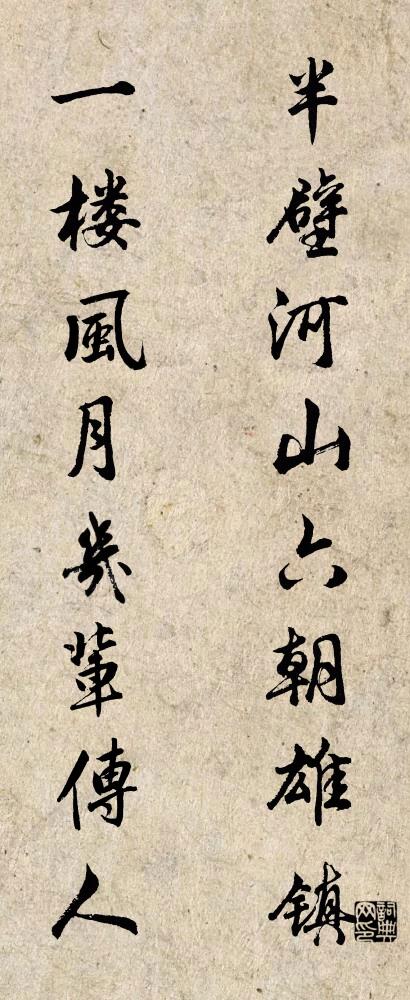 半壁河山六朝雄镇
一楼風月幾輩傳人
詞典网印